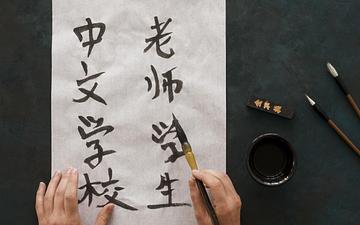 老师学生
中文学校